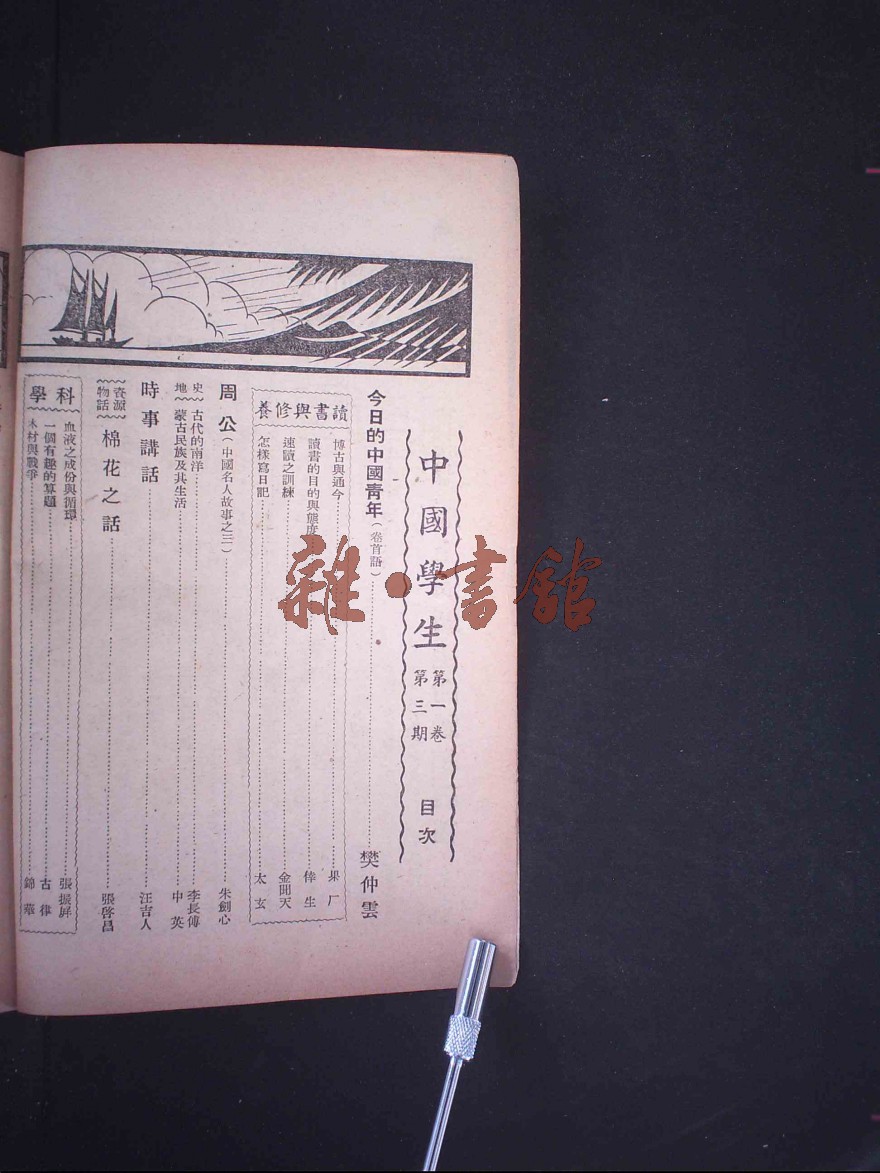 中國學生 第一卷 第三期 目次
今日的中國青年（卷首語）……樊仲雲
讀書與修養
博古與通今……果厂
讀書的目的與態度……倖生
速讀之訓練……金開天
怎樣寫日記……太玄
周公（中國名人故事之三）……朱劍心
史地
古代的南洋……李長傅
蒙古民族及其生活……中英
時事講話……汪吉人
資源物話
棉花之話……張啓昌
科學
血液之成份與循環……張振屏
一個有趣的算題……古律
木材與戰爭……錦華
雜·書館